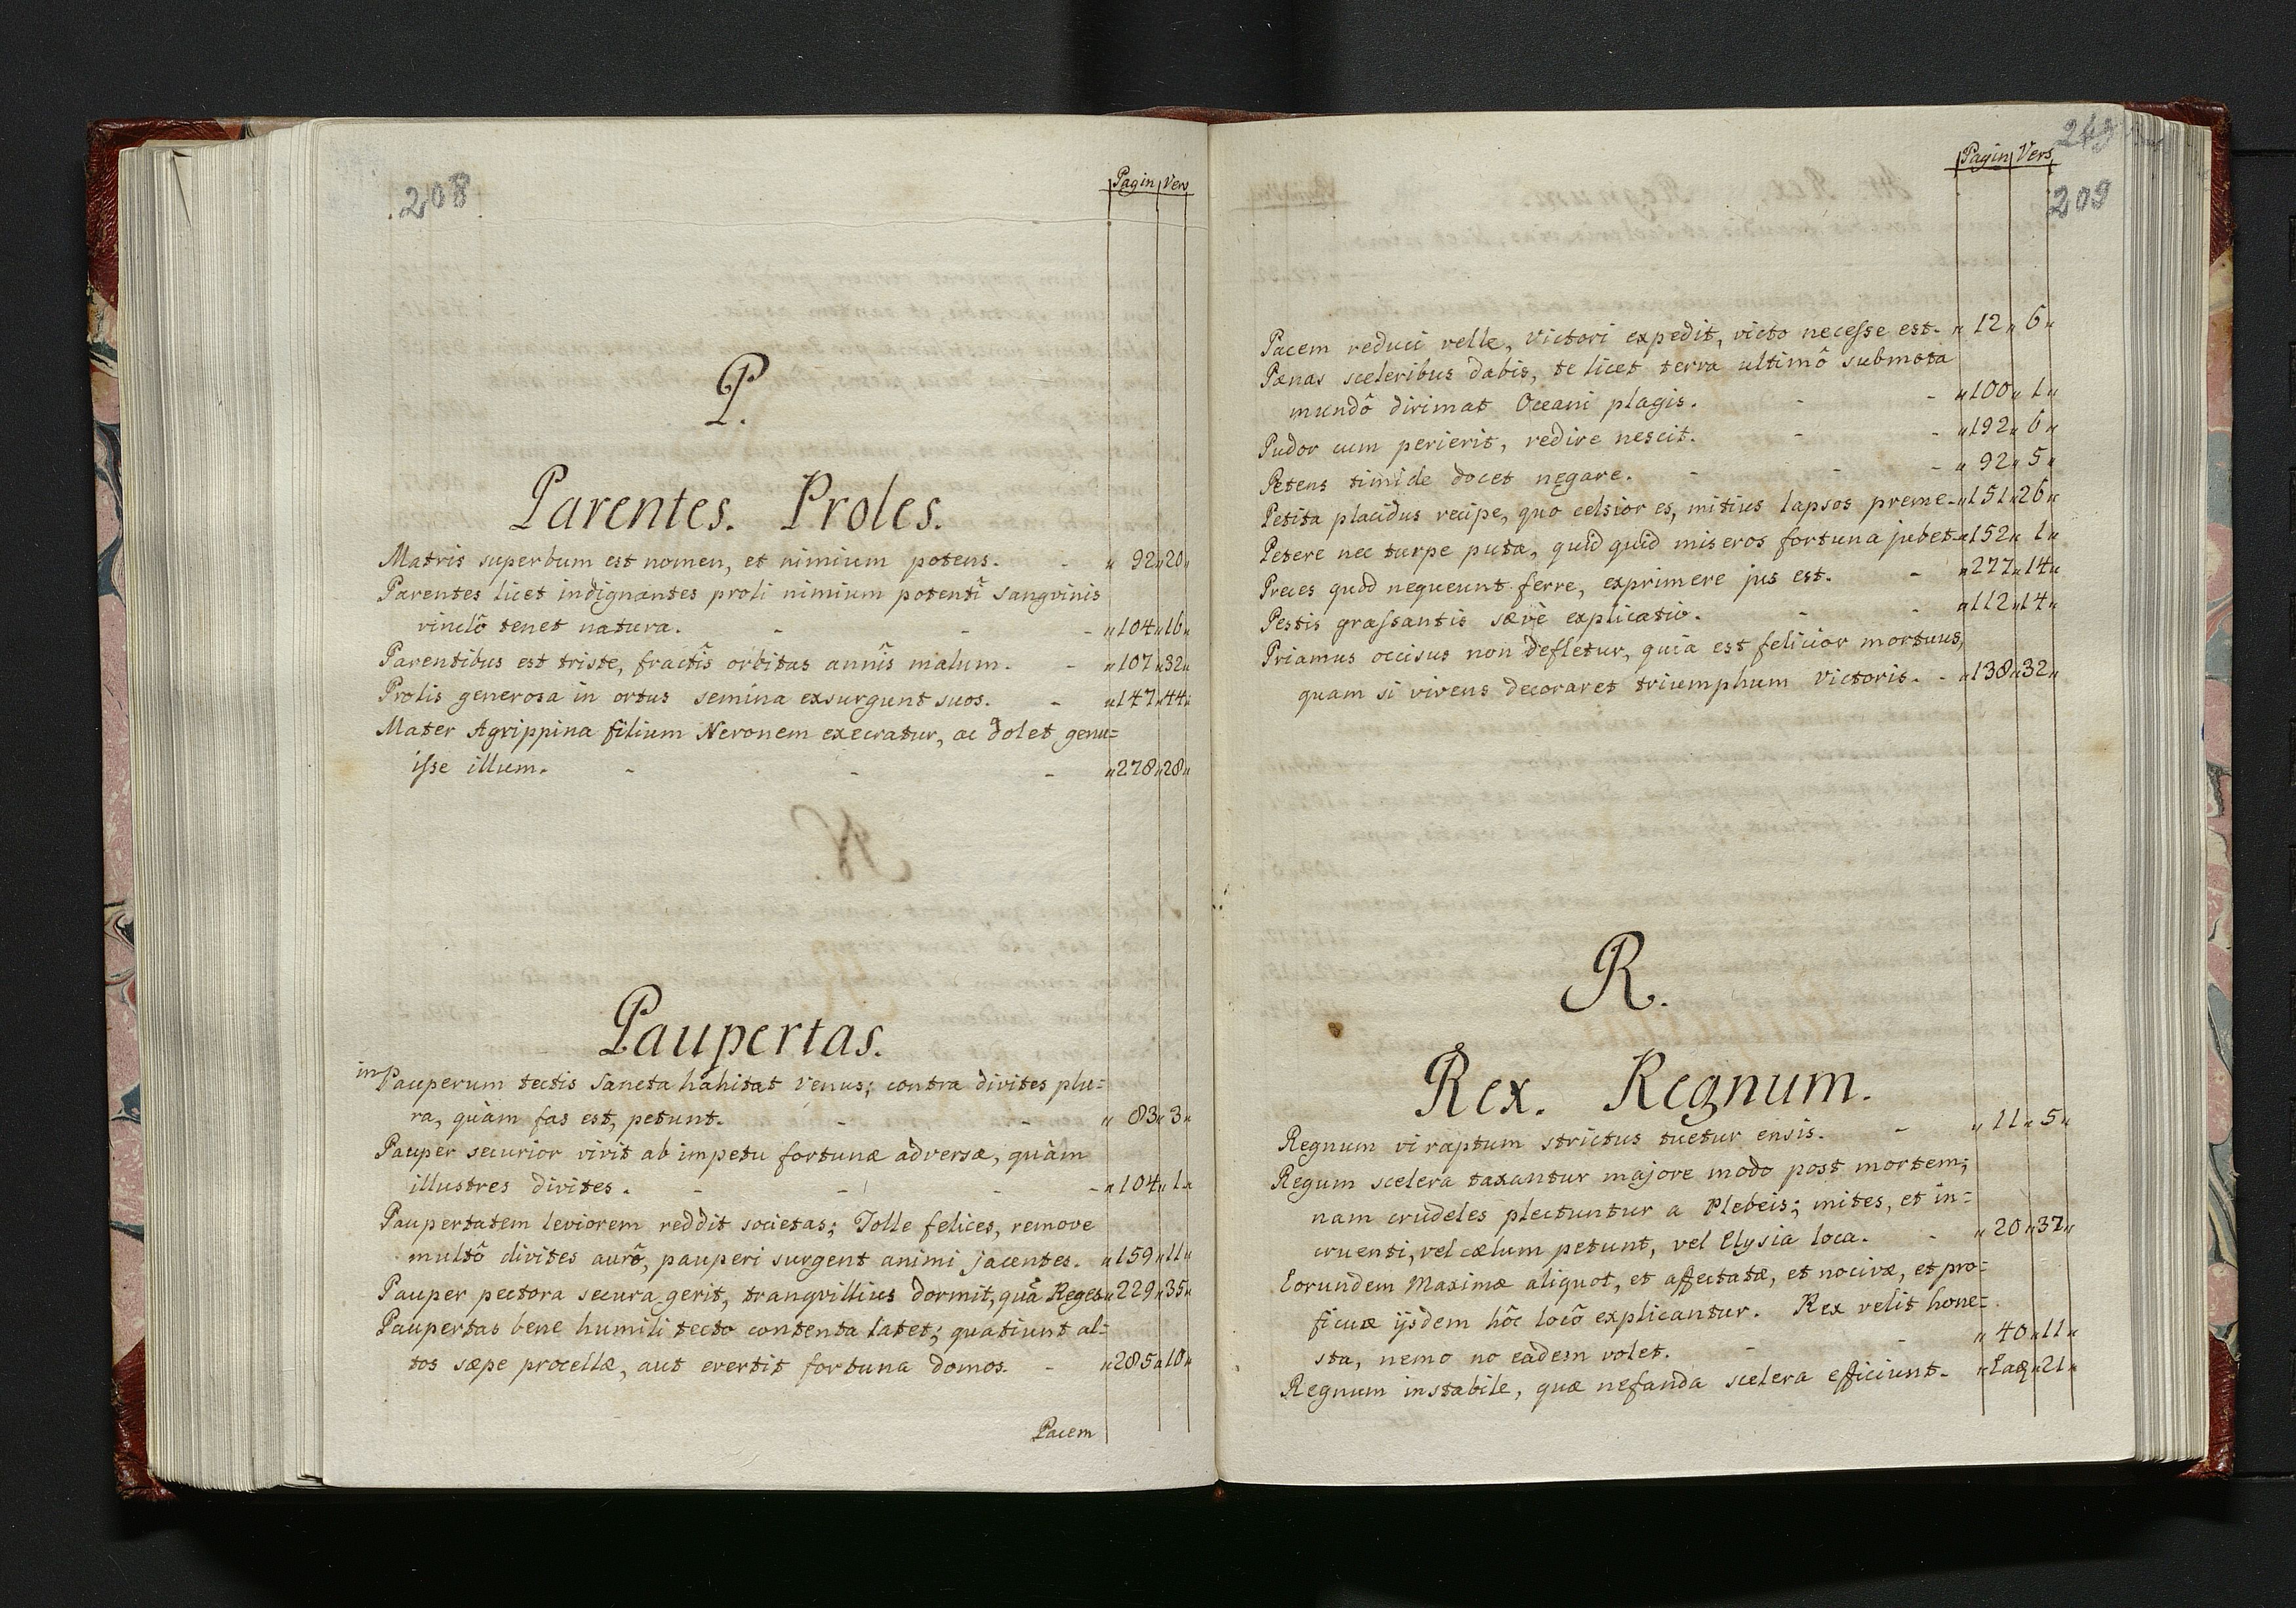 208
Pagin Vers
P.
Parentes. Proles.
Matris superbum est nomen, et nimium potens. - „ 92 „ 20 „
Parentes licet indignantes proli nimium potenti sangvinis
vinclô tenet natura. - - - „ 104 „ 16 „
Parentibus est triste, fractîs orbitas annîs malum. - - „ 107 „ 32 „
Prolis generosa in ortus semina exsurgunt suos. - „ 147 „ 44 „
Mater Agrippina filium Neronem execratur, ac dolet genu=
isse illum. - - - „ 278 „ 28 „
Paupertas.
in Pauperum tectis Sancta hahitat Venus; contra divites plu=
ra, quàm fas est, petunt. - - „ 83 „ 3 „
Pauper securior vivit ab impetu fortunæ adversæ, quàm
illustres divites. - - - - „ 104 „ 1 „
Paupertatem leviorem reddit societas; Tolle felices, remove
multô divites aurô, pauperi surgent animi jacentes. „ 159 „ 11 „
Pauper pectora secura gerit, tranqvillius dormit, quã Reges „ 229 „ 35 „
Paupertas bene humili tecto contenta latet; quatiunt al=
tos sæpe procellæ, aut evertit fortuna domos. - „ 285 „ 10 „
Pacem
Pagin Vers
209
Pacem reduci velle, Victori expedit, victo necesse est. „ 12 „ 6 „
Pænas sceleribus dabis, te licet terra ultimô submota
mundô dirimat Oceani plagis. - - „ 100 „ 1 „
Pudor cum perierit, redire nescit. - - „ 192 „ 6 „
Petens timide docet negare. - - - „ 92 „ 5 „
Petita placidus recipe, quo celsior es, mitius lapsos preme. „ 151 „ 26 „
Petere nec turpe puta, quid quid miseros fortuna jubet. „ 152 „ 1 „
Preces quod nequeunt ferre, exprimere jus est. - „ 277 „ 14 „
Pestis grassantis sævè explicatio. - - „ 112 „ 14 „
Priamus occisus non defletur, quia est felicior mortuus,
quam si vivens decoraret triumphum Victoris. - „ 138 „ 32 „
R.
Rex. Regnum.
Regnum vi raptum strictus tuetur ensis. - „ 11 „ 5 „
Regum scelera taxantur majore modo post mortem;
nam crudeles plectuntur a Plebeis; mites, et in=
cruenti, vel cælum petunt, vel Elysia loca. - „ 20 „ 37 „
Eorundem Maximæ aliquot, et affectatæ, et nocivæ, et pro=
ficuæ ijsdem hôc locô explicantur. Rex velit hone=
sta, nemo no eadem volet. - - „ 40 „ 11 „
Regnum instabile, quæ nefanda scelera efficiunt. „ Eaq „ 21 „